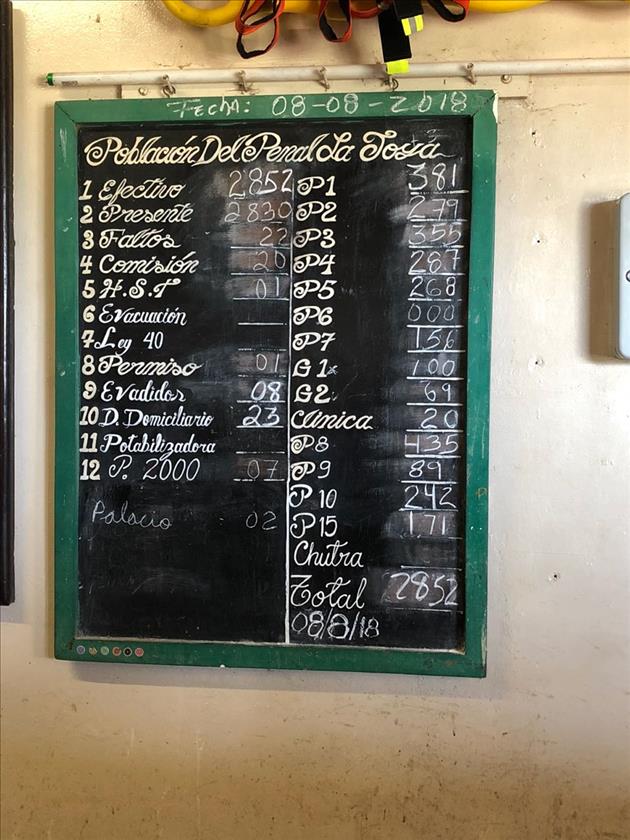 FECHA: 08-08-2018
Población Del Penal La Joya
1 Efectivo 2852
2 Presente 2830
3 Faltos 22
4 Comisión 20
5 H.S.T 01
6 Evacuación
7 Ley 40
8 Permiso 01
9 Evadidos 08
10 D. Domiciliario 23
11 Potabilizadora
12 P. 2000 07
Palacio - 02
P1 381
P2 279
P3 355
P4 287
P5 268
P6 000
P7 156
G1 100
G2 69
Clinica 20
P8 435
P9 89
P10 242
P15 171
Chutra
Total 2852
08/8/18